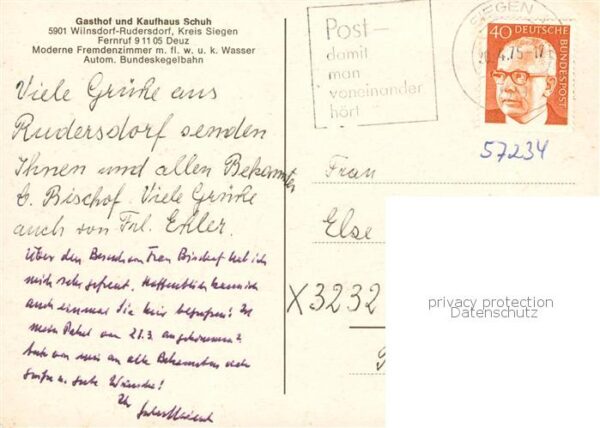 Gasthof und Kaufhaus Schuh
5901 Wilnsdorf-Rudersdorf, Kreis Siegen
Fernruf 9 11 05 Deuz
Moderne Fremdenzimmer m. fl. w. u. k. Wasser
Autom. Bundeskegelbahn
Post -
damit
man
voneinander
hört
SIEGEN
.4.75-17
40
DEUTSCHE
BUNDESPOST
57234
Viele Grüße aus
Rudersdorf senden
Ihnen und allen Bekannten
E. Bischof. Viele Grüße
auch von Frl. Exler.
Über den Besuch von Frau Bischof hab ich
mich sehr gefreut. Hoffentlich kann ich
auch einmal Sie hier begrüßen! Ist
mein Paket vom 21.3. angekommen?
von mir an alle Bekannten
Grüße u. gute Wünsche!
Ihr
Frau
Else
X3232
privacy protection
Datenschutz